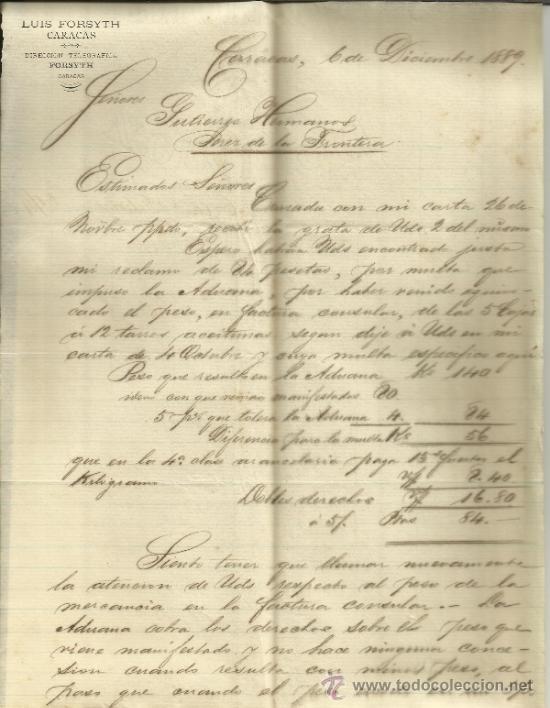 LUIS FORSYTH
CARACAS
DIRECCION TELEGRAFICA
FORSYTH
CARACAS
Carácas, 6 de Diciembre 1889.
Señores
Gutierrez Hermanos
Jerez de la Frontera
Estimados Señores
Cruzada con mi carta 26 de
Novbre ppdo, recibí la grata de Uds 2 del mismo
Espero habrán Uds encontrado justa
mi reclamo de 84 pesetas, por multa que
impuso la Aduana, por haber venido equivo-
cado el peso, en factura consular, de las 5 Cajas
á 12 tarros aceitunas segun dije á Uds en mi
carta de 40 Octubre y cuya multa especifico aqui
Peso que resultó en la Aduana Ko 140
idem con que venian manifestados 80
5 p% que tolera la Aduana 4. 84
Diferencia para la multa Ks 56
que en la 4a clase arancelaria paga el
Kilógramo 8.40
Dobles derechos 16.80
á 5/. Ptas 84.-
Siento tener que llamar nuevamente
la atencion de Uds respecto al peso de la
mercancia en la factura consular.- La
Aduana cobra los derechos sobre el peso que
viene manifestado y no hace ninguna conce-
sion cuando resulta con menos peso, al
paso que cuando el peso
www.todocoleccion.net